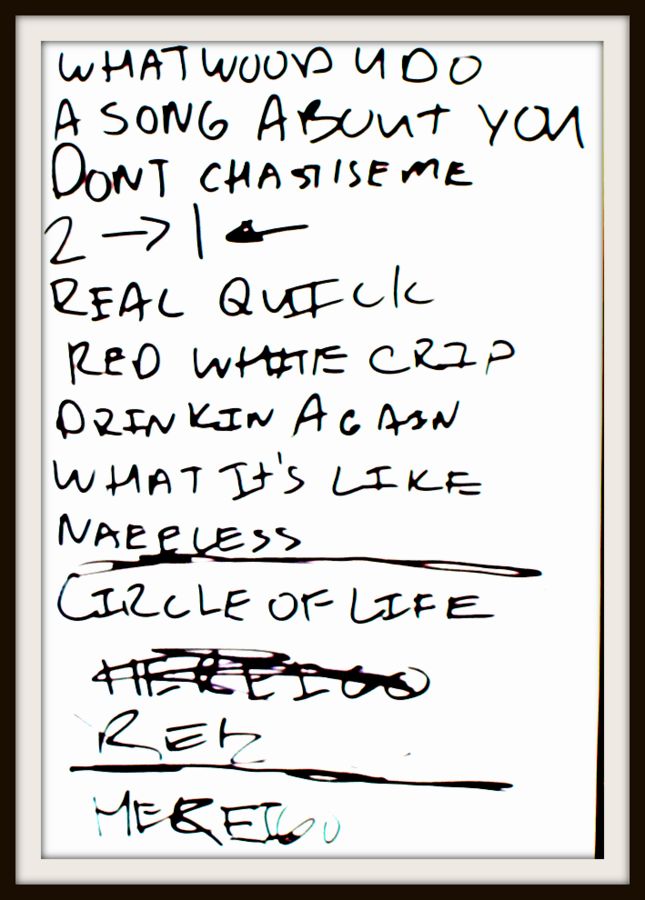 WHAT WOOD U DO
A SONG ABOUT YOU
DONT CHASTISE ME
2 → 1 ←
REAL QUICK
RED WHITE CRIP
DRINKIN AGAIN
WHAT IT'S LIKE
CIRCLE OF LIFE
HERE I GO
HERE I GO